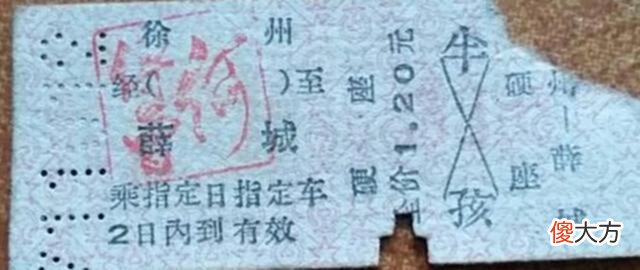 徐州
经( )至
薛城
乘指定日指定车
2日内到有效
硬座
全价1.20元
半 孩
硬座
州—薛
傻大方